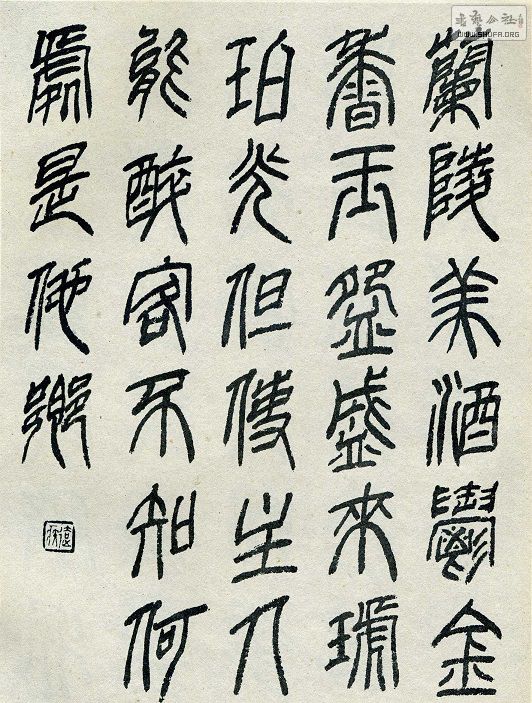 書藝公社
WWW.SHUFA.ORG
蘭陵美酒鬱金
香玉盌盛來琥
珀光但使主人
能醉客不知何
處是他鄉